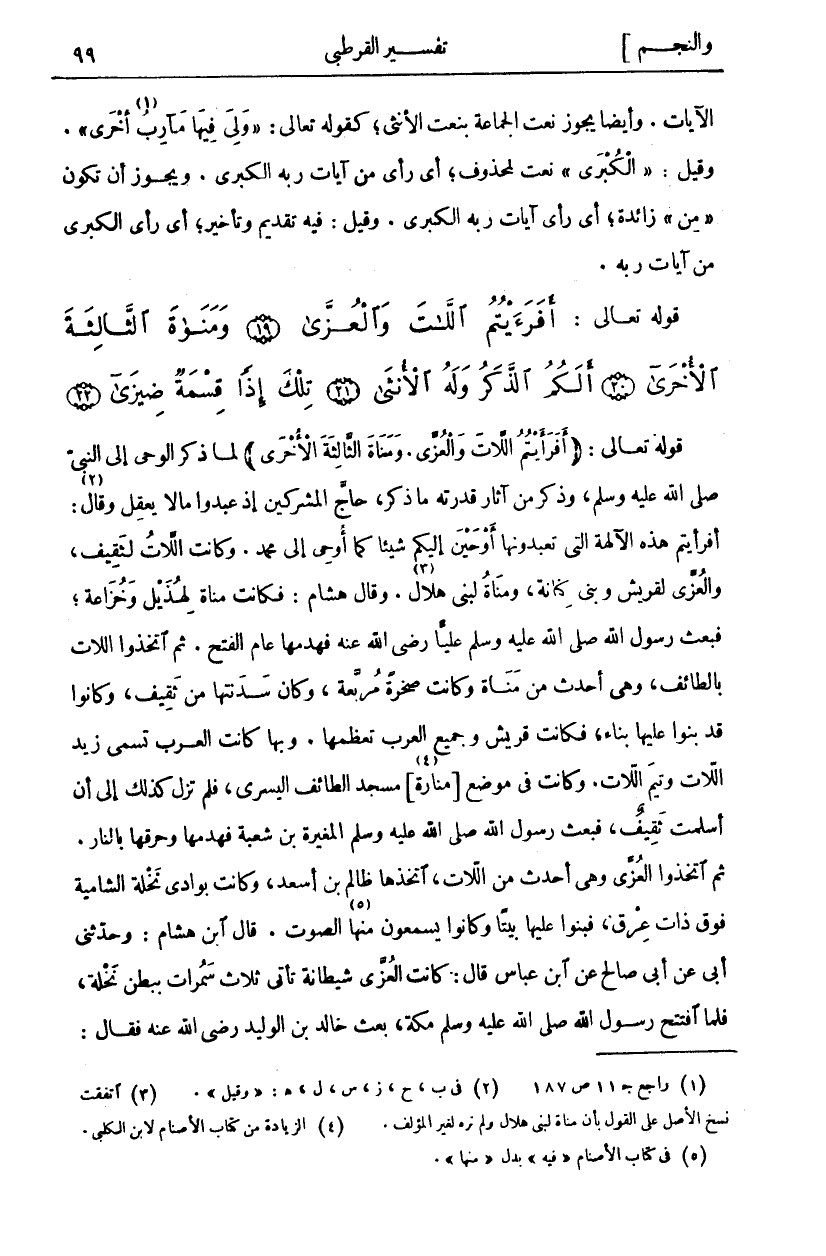 والنجم ] تفسير القرطبى ٩٩
الآيات . وأيضا يجوز نعت الجماعة بنعت الأنثى؛ كقوله تعالى: «وَلِىَ فِيهَا مَآرِبُ أُخْرَى»(١) .
وقيل : « الْكُبْرَى » نعت لمحذوف؛ أى رأى من آيات ربه الكبرى . ويجوز أن تكون
«مِن» زائدة؛ أى رأى آيات ربه الكبرى . وقيل : فيه تقديم وتأخير؛ أى رأى الكبرى
من آيات ربه .
قوله تعالى : أَفَرَءَيْتُمُ ٱللَّٰتَ وَٱلْعُزَّىٰ ﴿١٩﴾ وَمَنَوٰةَ ٱلثَّالِثَةَ
ٱلْأُخْرَىٰٓ ﴿٢٠﴾ أَلَكُمُ ٱلذَّكَرُ وَلَهُ ٱلْأُنثَىٰ ﴿٢١﴾ تِلْكَ إِذًا قِسْمَةٌ ضِيزَىٰٓ ﴿٢٢﴾
قوله تعالى : ﴿أَفَرَأَيْتُمُ اللَّاتَ وَالْعُزَّى . وَمَنَاةَ الثَّالِثَةَ الْأُخْرَى﴾ لما ذكر الوحى إلى النبىّ
صلى الله عليه وسلم، وذكر من آثار قدرته ما ذكر، حاجّ المشركين إذ عبدوا مالا يعقِل وقال(٢):
أفرأيتم هذه الآلهة التى تعبدونها أَوْحَيْنَ إليكم شيئا كما أُوحِى إلى محمد . وكانت اللّاتُ لثَقِيف،
والعُزَّى لقريش وبنى كِنانة، ومَناةُ لبنى هلال(٣) . وقال هشام : فكانت مناة لِهُذَيْل وَخُزَاعة ؛
فبعث رسول الله صلى الله عليه وسلم عليًّا رضى الله عنه فهدمها عام الفتح . ثم ٱتخذوا اللات
بالطائف، وهى أحدث من مَنَاة وكانت صخرةً مُربَّعة ، وكان سَدَنتها من ثَقِيف، وكانوا
قد بنوا عليها بناء، فكانت قريش وجميع العرب تعظمها . وبها كانت العرب تسمى زيد
اللّات وتيمَ اللّات. وكانت فى موضع [منارة](٤) مسجد الطائف اليسرى، فلم تزل كذلك إلى أن
أسلمت ثَقِيفٌ، فبعث رسول الله صلى الله عليه وسلم المغيرة بن شعبة فهدمها وحرقها بالنار .
ثم ٱتخذوا العُزَّى وهى أحدث من اللّات، ٱتخذها ظالم بن أسعد، وكانت بوادى نَخْلة الشامية
فوق ذات عِرْق، فبنوا عليها بيتًا وكانوا يسمعون منها(٥) الصوت . قال ٱبن هشام : وحدّثنى
أبى عن أبى صالح عن ٱبن عباس قال: كانت العُزَّى شيطانة تأتى ثلاث سَمُرات ببطن نَخْلة،
فلما ٱفتتح رسول الله صلى الله عليه وسلم مكة، بعث خالد بن الوليد رضى الله عنه فقال :
(١) راجع جـ ١١ ص ١٨٧ (٢) فى ب، ح، ز، س، ل، هـ : «وقيل» . (٣) ٱتفقت
نسخ الأصل على القول بأن مناة لبنى هلال ولم نره لغير المؤلف . (٤) الزيادة من كتاب الأصنام لابن الكلبى .
(٥) فى كتاب الأصنام « فيه » بدل « منها » .